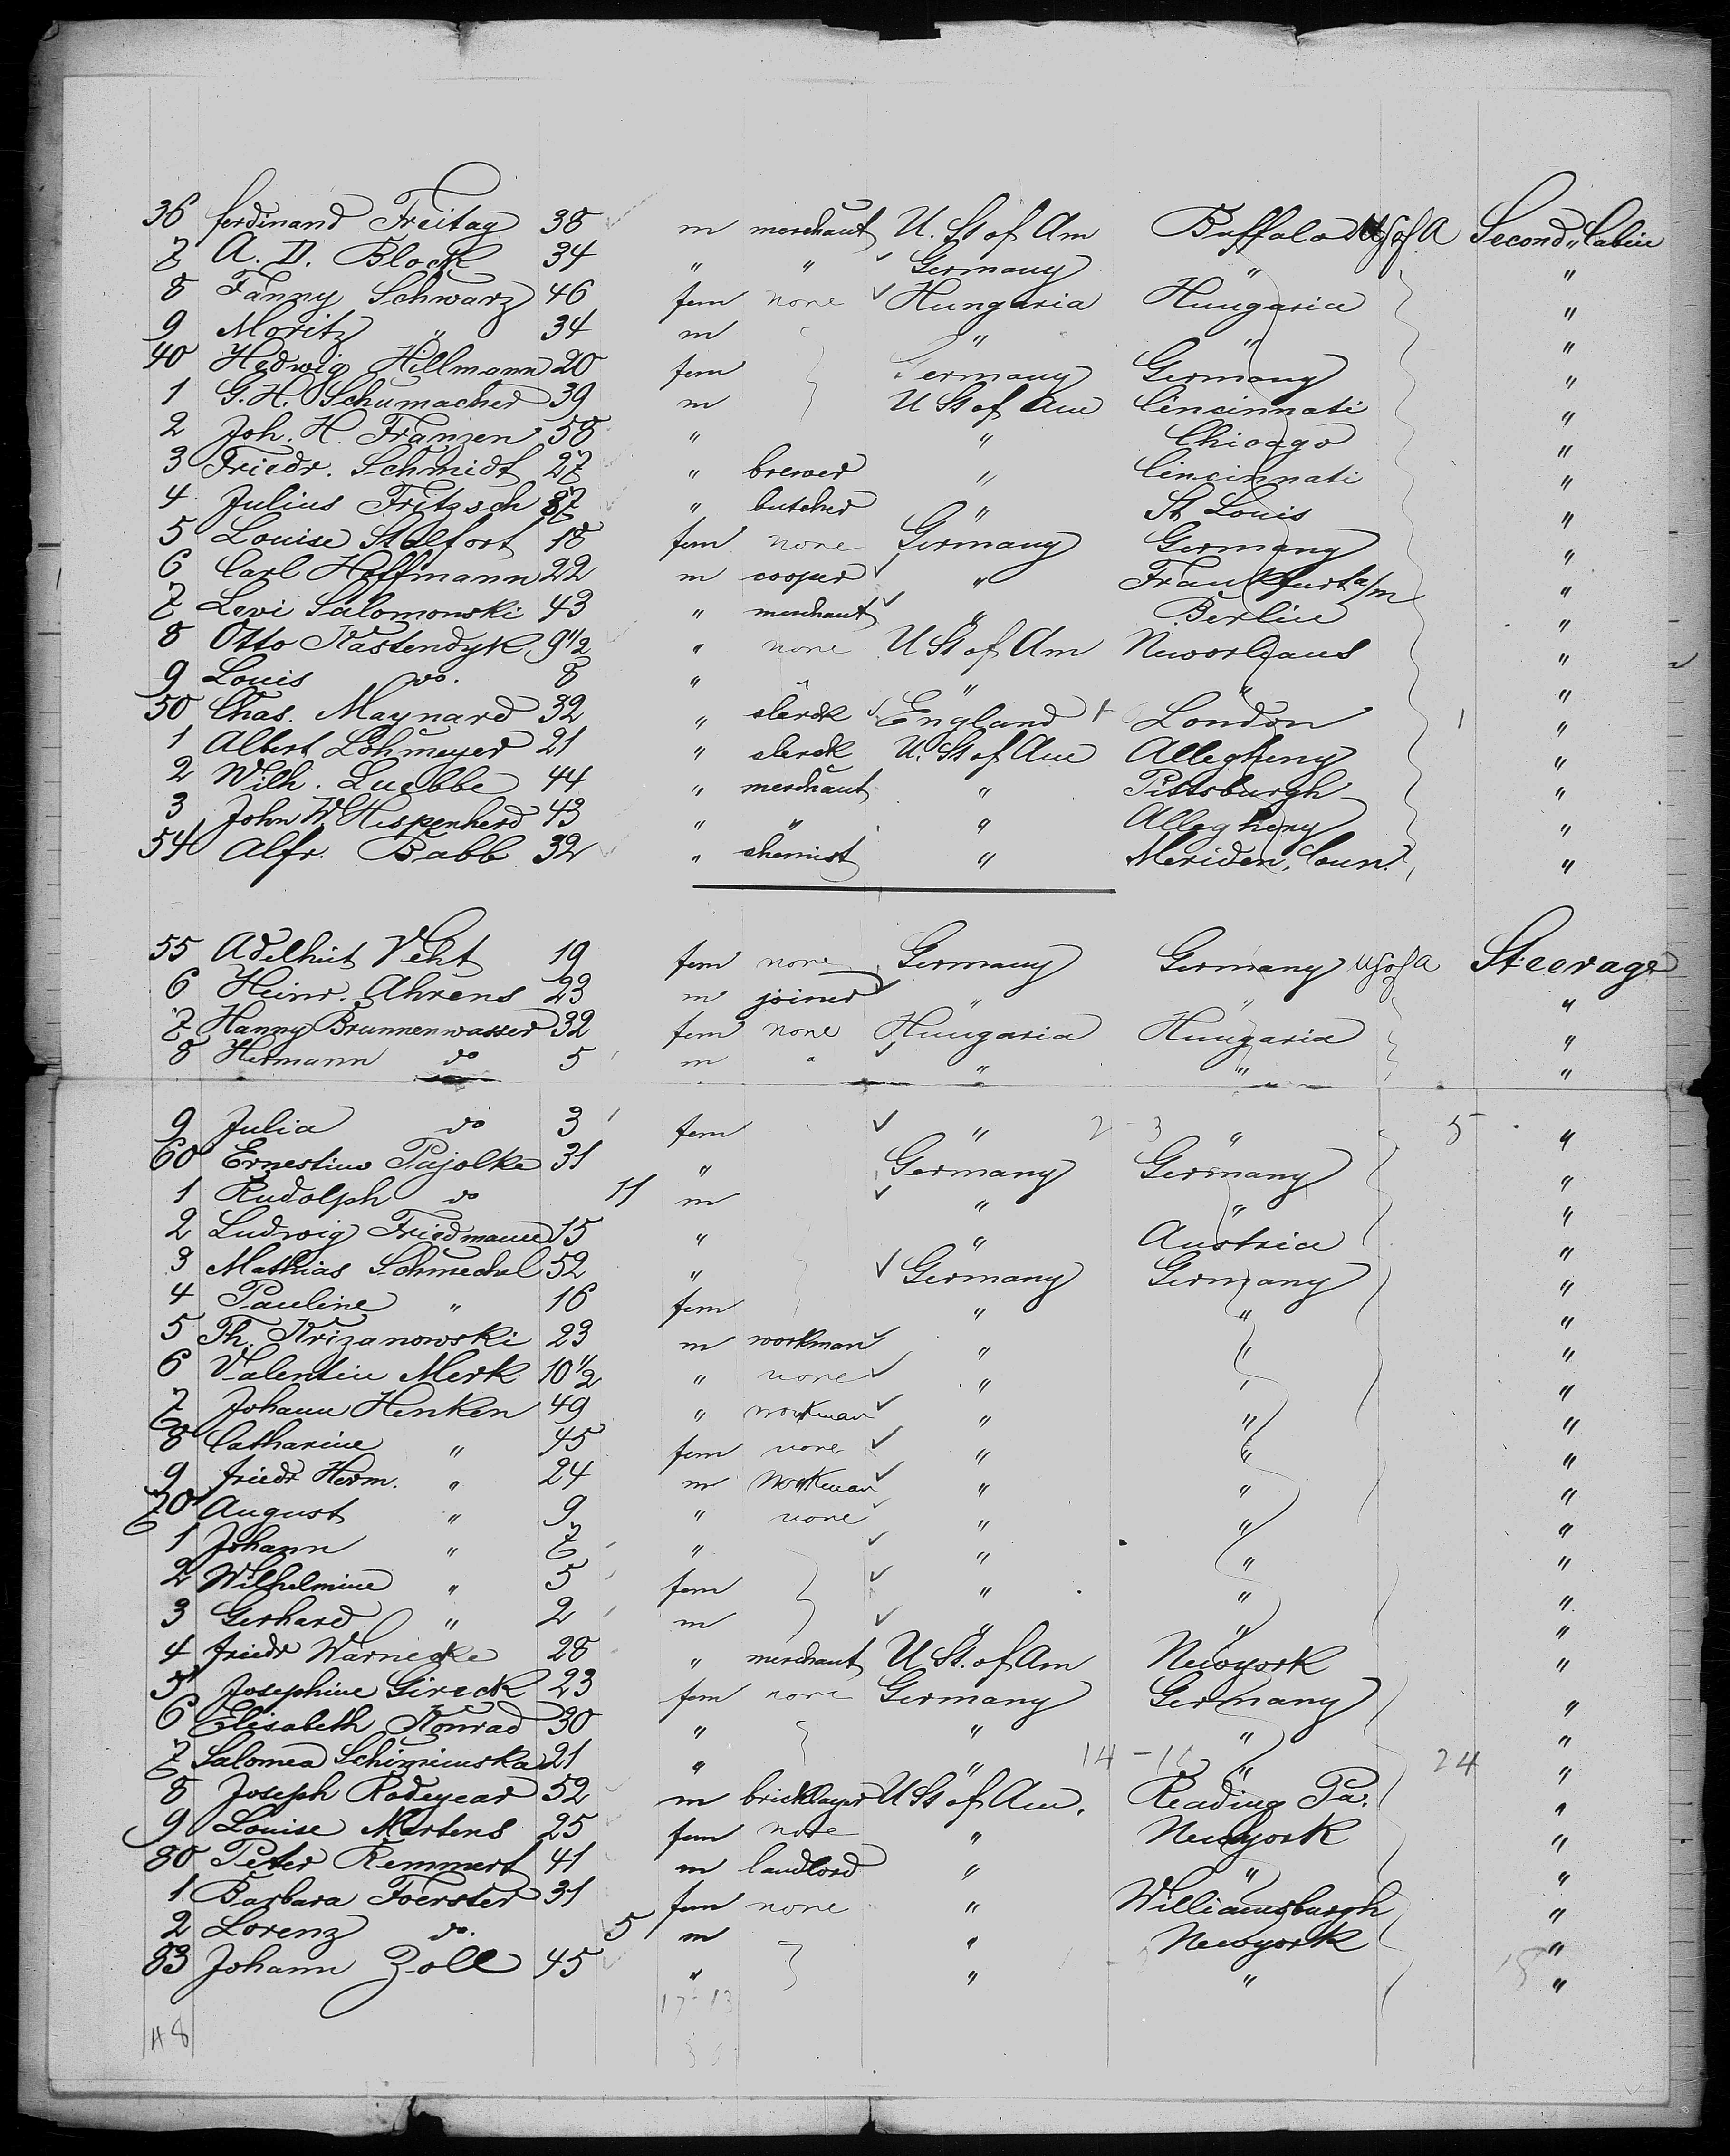 36 Ferdinand Freitag 38 m merchant U. St of Am Buffalo U S of A Second Cabin
7 A. D. Block 34 " " Germany " "
8 Fanny Schwarz 46 fem none Hungaria Hungaria "
9 Moritz " 34 m " " "
40 Hedwig Hillmann 20 fem Germany Germany "
1 G. H. Schumacher 39 m U St of Am Cincinnati "
2 Joh. H. Franzen 58 " " Chicago "
3 Friedr. Schmidt 27 " brewer " Cincinnati "
4 Julius Fritzsch 37 " butcher " St Louis "
5 Louise Stalfort 18 fem none Germany Germany "
6 Carl Hoffmann 22 m cooper " Frankfurt a/m "
7 Levi Salomonski 43 " merchant " Berlin "
8 Otto Kastendyk 9 1/2 " none U St of Am Neworleans "
9 Louis do. 8 " " " " "
50 Chas. Maynard 32 " clerck England London 1 "
1 Albert Lohmeyer 21 " clerck U. St of Am Allegheny "
2 Wilh. Luebbe 44 " merchant " Pittsburgh "
3 John W. Hespenherd 43 " " " Allegheny "
54 Alfr. Babb 32 " chemist " Meriden, Conn. "
55 Adelheit Veht 19 fem none Germany Germany U S of A Steerage
6 Heinr. Ahrens 23 m joiner " " "
7 Hanny Brunnenwasser 32 fem none Hungaria Hungaria "
8 Hermann do 5 m " " " "
9 Julia do 3 fem " 2 - 3 " 5 "
60 Ernestine Pajolke 31 " Germany Germany "
1 Rudolph do 11 m " " "
2 Ludwig Friedmann 15 " " Austria "
3 Mathias Schmechel 52 " Germany Germany "
4 Pauline " 16 fem " " "
5 Th. Krizanowski 23 m workman " " "
6 Valentin Merk 10 1/2 " none " " "
7 Johann Henken 49 " workman " " "
8 Catharine " 45 fem none " " "
9 Friedr Herm. " 24 m workman " " "
70 August " 9 " none " " "
1 Johann " 7 " " " "
2 Wilhelmine " 5 fem " " "
3 Gerhard " 2 m " " "
4 Friedr Warnecke 28 " merchant U. St. of Am Newyork "
5 Josephine Gireck 23 fem none Germany Germany "
6 Elisabeth Konrad 30 " " " "
7 Salomea Schimienska 21 " " 14 - " 24 "
8 Joseph Rodeyear 52 m bricklayer U St of Am. Reading Pa. "
9 Louise Mertens 25 fem none " Newyork "
80 Peter Remmert 41 m landlord " " "
1 Barbara Foerster 31 fem none " Williamsburgh "
2 Lorenz do. 5 m " Newyork "
83 Johann Zoll 45 " " " "
17-13
48
30